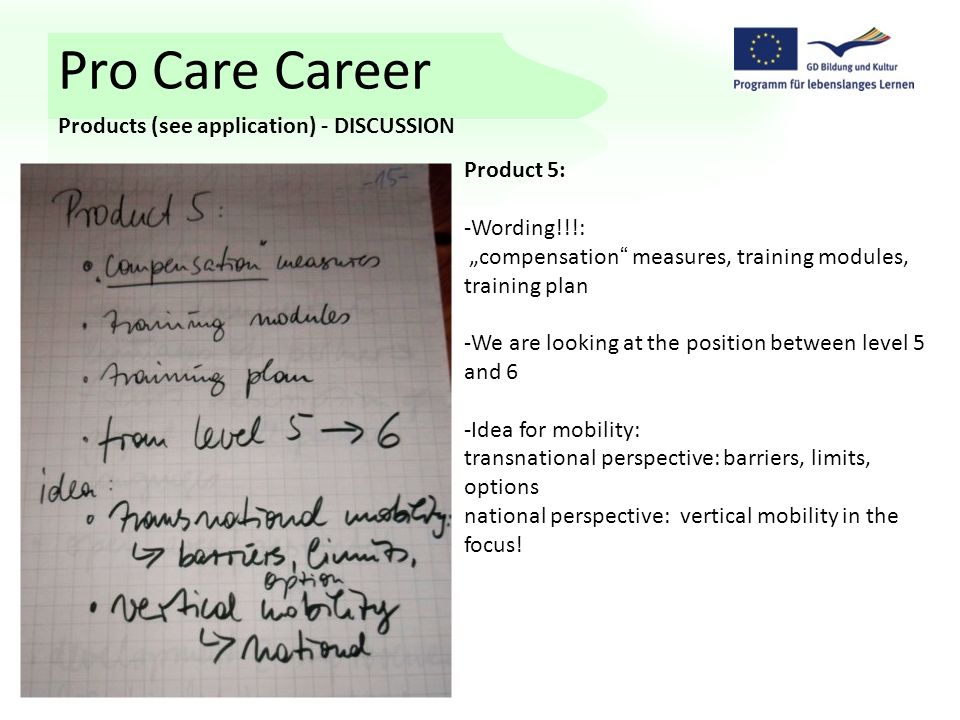 Pro Care Career
GD Bildung und Kultur
Programm für lebenslanges Lernen
Products (see application) - DISCUSSION
-15-
Product 5:
• „compensation“ measures
• training modules
• training plan
• from level 5 → 6
idea:
• transnational mobility:
↳ barriers, limits,
option
• vertical mobility
↳ national
Product 5:
-Wording!!!:
„compensation“ measures, training modules,
training plan
-We are looking at the position between level 5
and 6
-Idea for mobility:
transnational perspective: barriers, limits,
options
national perspective: vertical mobility in the
focus!